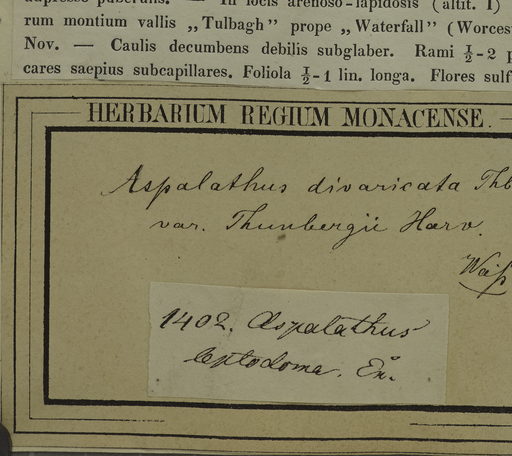 adpresse puberulis. — In locis arenoso-lapidosis (altit. I)
rum montium vallis „Tulbagh” prope „Waterfall” (Worces
Nov. — Caulis decumbens debilis subglaber. Rami ½-2 p
cares saepius subcapillares. Foliola ½-1 lin. longa. Flores sulf
HERBARIUM REGIUM MONACENSE.
Aspalathus divaricata Thb
var. Thunbergii Harv.
1402. Aspalathus
leptodoma. En.